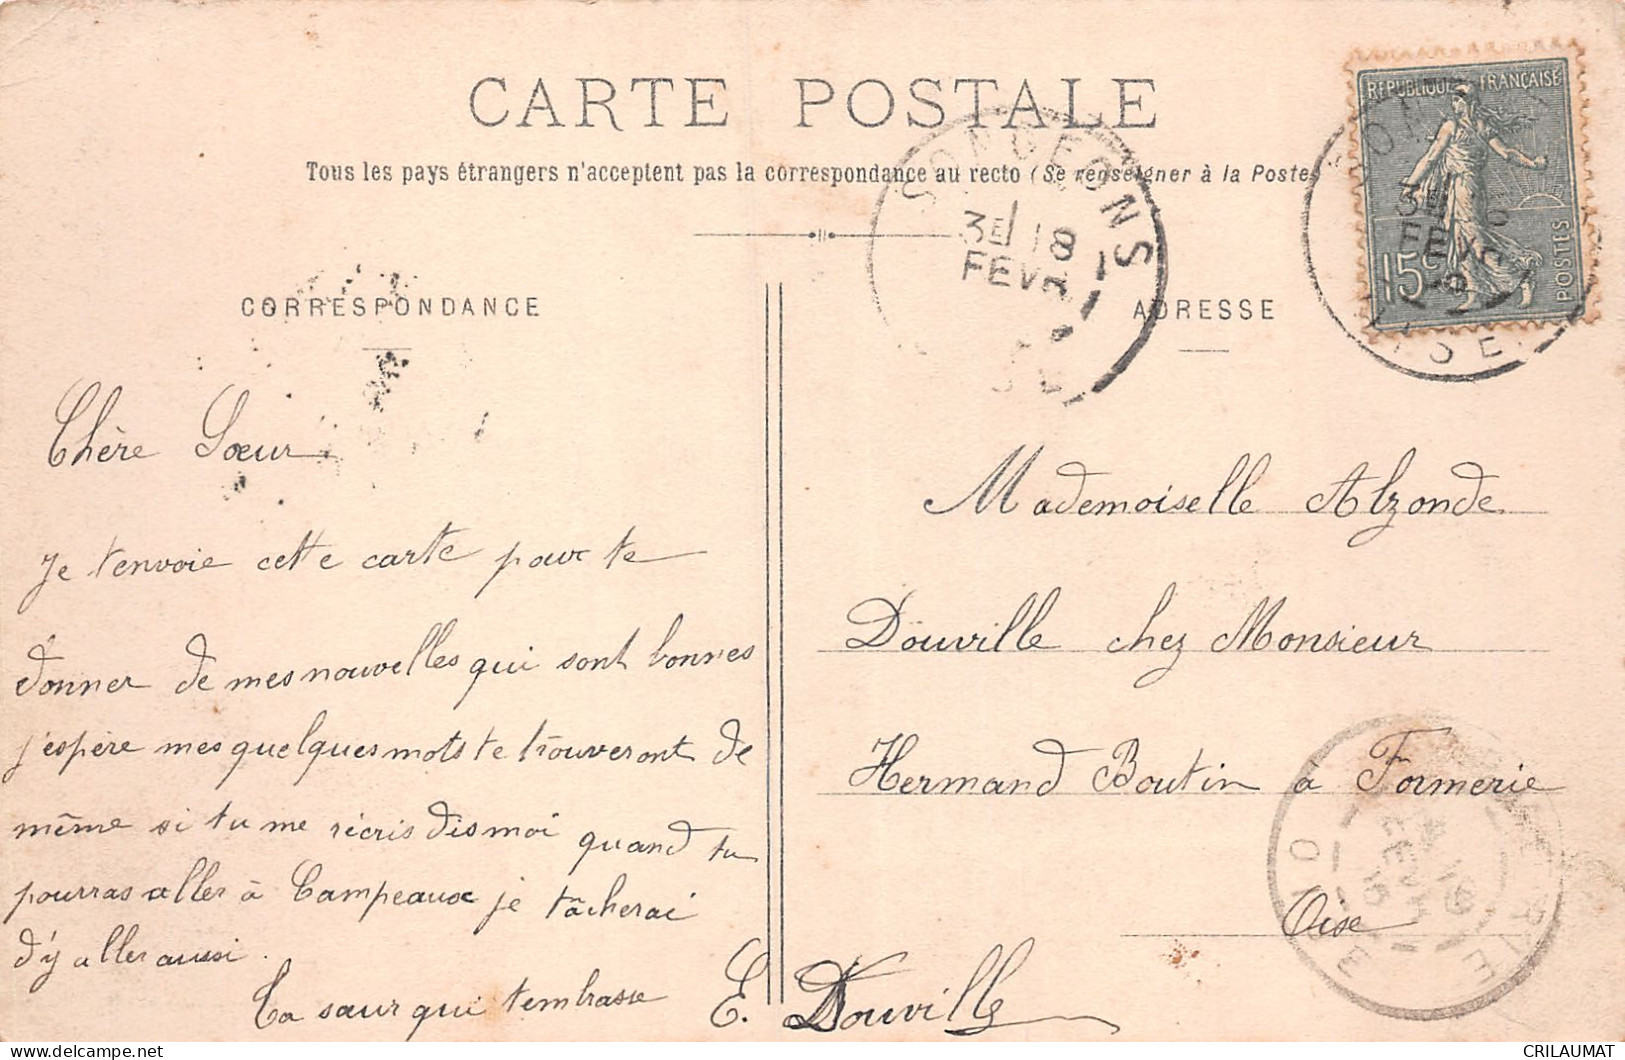 CARTE POSTALE
Tous les pays étrangers n'acceptent pas la correspondance au recto (Se renseigner à la Poste)
RÉPUBLIQUE FRANÇAISE
15c
POSTES
SONGEONS
3E 18
FEVR
3E
FEVR
OISE
CORRESPONDANCE
Chère Sœur
Je t'envoie cette carte pour te
donner de mes nouvelles qui sont bonnes
j'espère mes quelques mots te trouveront de
même si tu me récris dis moi quand tu
pourras aller à Campeaux je tâcherai
d'y aller aussi.
Ta sœur qui tembrasse
E. Douville
ADRESSE
Mademoiselle Alzonde
Douville chez Monsieur
Hermand Boutin a Formerie
Oise
delcampe.net
CRILAUMAT